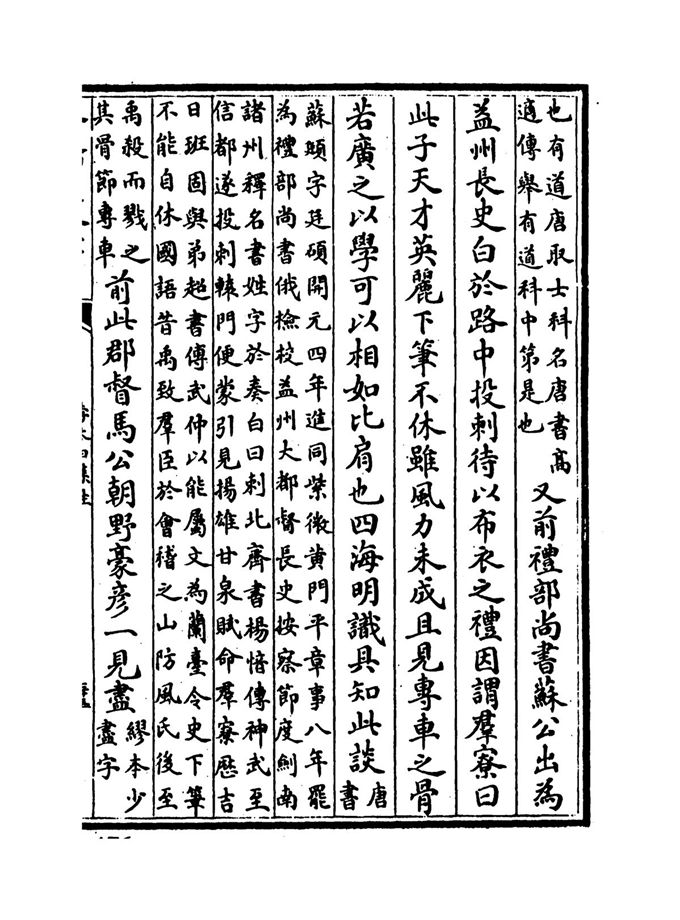 也有道唐取士科名唐書高
適傳舉有道科中第是也
又前禮部尚書蘇公出為
益州長史白於路中投刺待以布衣之禮因謂羣寮曰
此子天才英麗下筆不休雖風力未成且見專車之骨
若廣之以學可以相如比肩也四海明識具知此談
唐
書
蘇頲字廷碩開元四年進同紫微黄門平章事八年罷
為禮部尚書俄檢校益州大都督長史按察節度劍南
諸州釋名書姓字於奏白曰刺北齊書楊愔傳神武至
信都遂投刺轅門便蒙引見揚雄甘泉賦命羣寮歴吉
日班固與弟超書傅武仲以能屬文為蘭臺令史下筆
不能自休國語昔禹致羣臣於會稽之山防風氏後至
禹殺而戮之
其骨節專車
前此郡督馬公朝野豪彥一見盡
繆本少
盡字
李太白集注